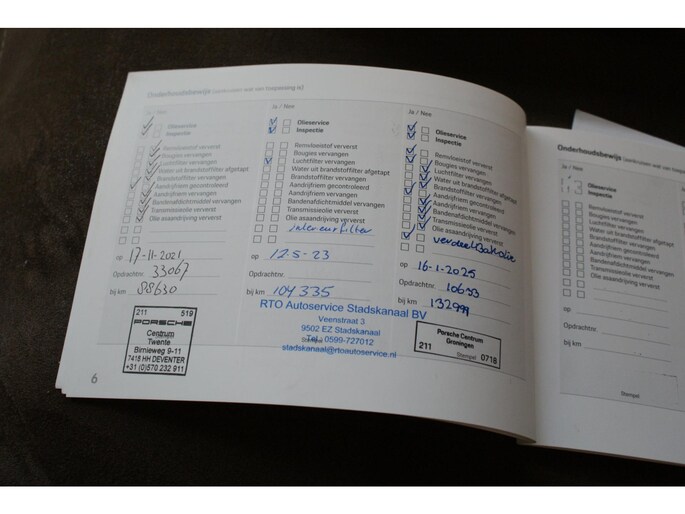 Onderhoudsbewijs
Ja / Nee
Olieservice
Inspectie
Remvloeistof ververst
Bougies vervangen
Luchtfilter vervangen
Water uit brandstoffilter afgetapt
Brandstoffilter vervangen
Aandrijfriem gecontroleerd
Aandrijfriem vervangen
Bandenafdichtmiddel vervangen
Transmissieolie ververst
Olie asaandrijving ververst
op 17-11-2021
Opdrachtnr. 33067
bij km 88630
211 519
PORSCHE
Centrum
Twente
Birnieweg 9-11
7418 HH DEVENTER
+31 (0)570 232 911
6
Ja / Nee
Olieservice
Inspectie
Remvloeistof ververst
Bougies vervangen
Luchtfilter vervangen
Water uit brandstoffilter afgetapt
Brandstoffilter vervangen
Aandrijfriem gecontroleerd
Aandrijfriem vervangen
Bandenafdichtmiddel vervangen
Transmissieolie ververst
Olie asaandrijving ververst
interieurfilter
op 12-5-23
Opdrachtnr.
bij km 104335
RTO Autoservice Stadskanaal BV
Veenstraat 3
9502 EZ Stadskanaal
Tel. 0599-727012
stadskanaal@rtoautoservice.nl
Ja / Nee
Olieservice
Inspectie
Remvloeistof ververst
Bougies vervangen
Luchtfilter vervangen
Water uit brandstoffilter afgetapt
Brandstoffilter vervangen
Aandrijfriem gecontroleerd
Aandrijfriem vervangen
Bandenafdichtmiddel vervangen
Transmissieolie ververst
Olie asaandrijving ververst
verdeelbakolie
op 16-1-2025
Opdrachtnr. 10693
bij km 132999
Porsche Centrum
Groningen
211 Stempel 0718
Onderhoudsbewijs
Ja / Nee
Olieservice
Inspectie
Remvloeistof ververst
Bougies vervangen
Luchtfilter vervangen
Water uit brandstoffilter
Brandstoffilter vervangen
Aandrijfriem gecontroleerd
Aandrijfriem vervangen
Bandenafdichtmiddel
Transmissieolie ververst
Olie asaandrijving ververst
op
Opdrachtnr.
bij km
Stempel